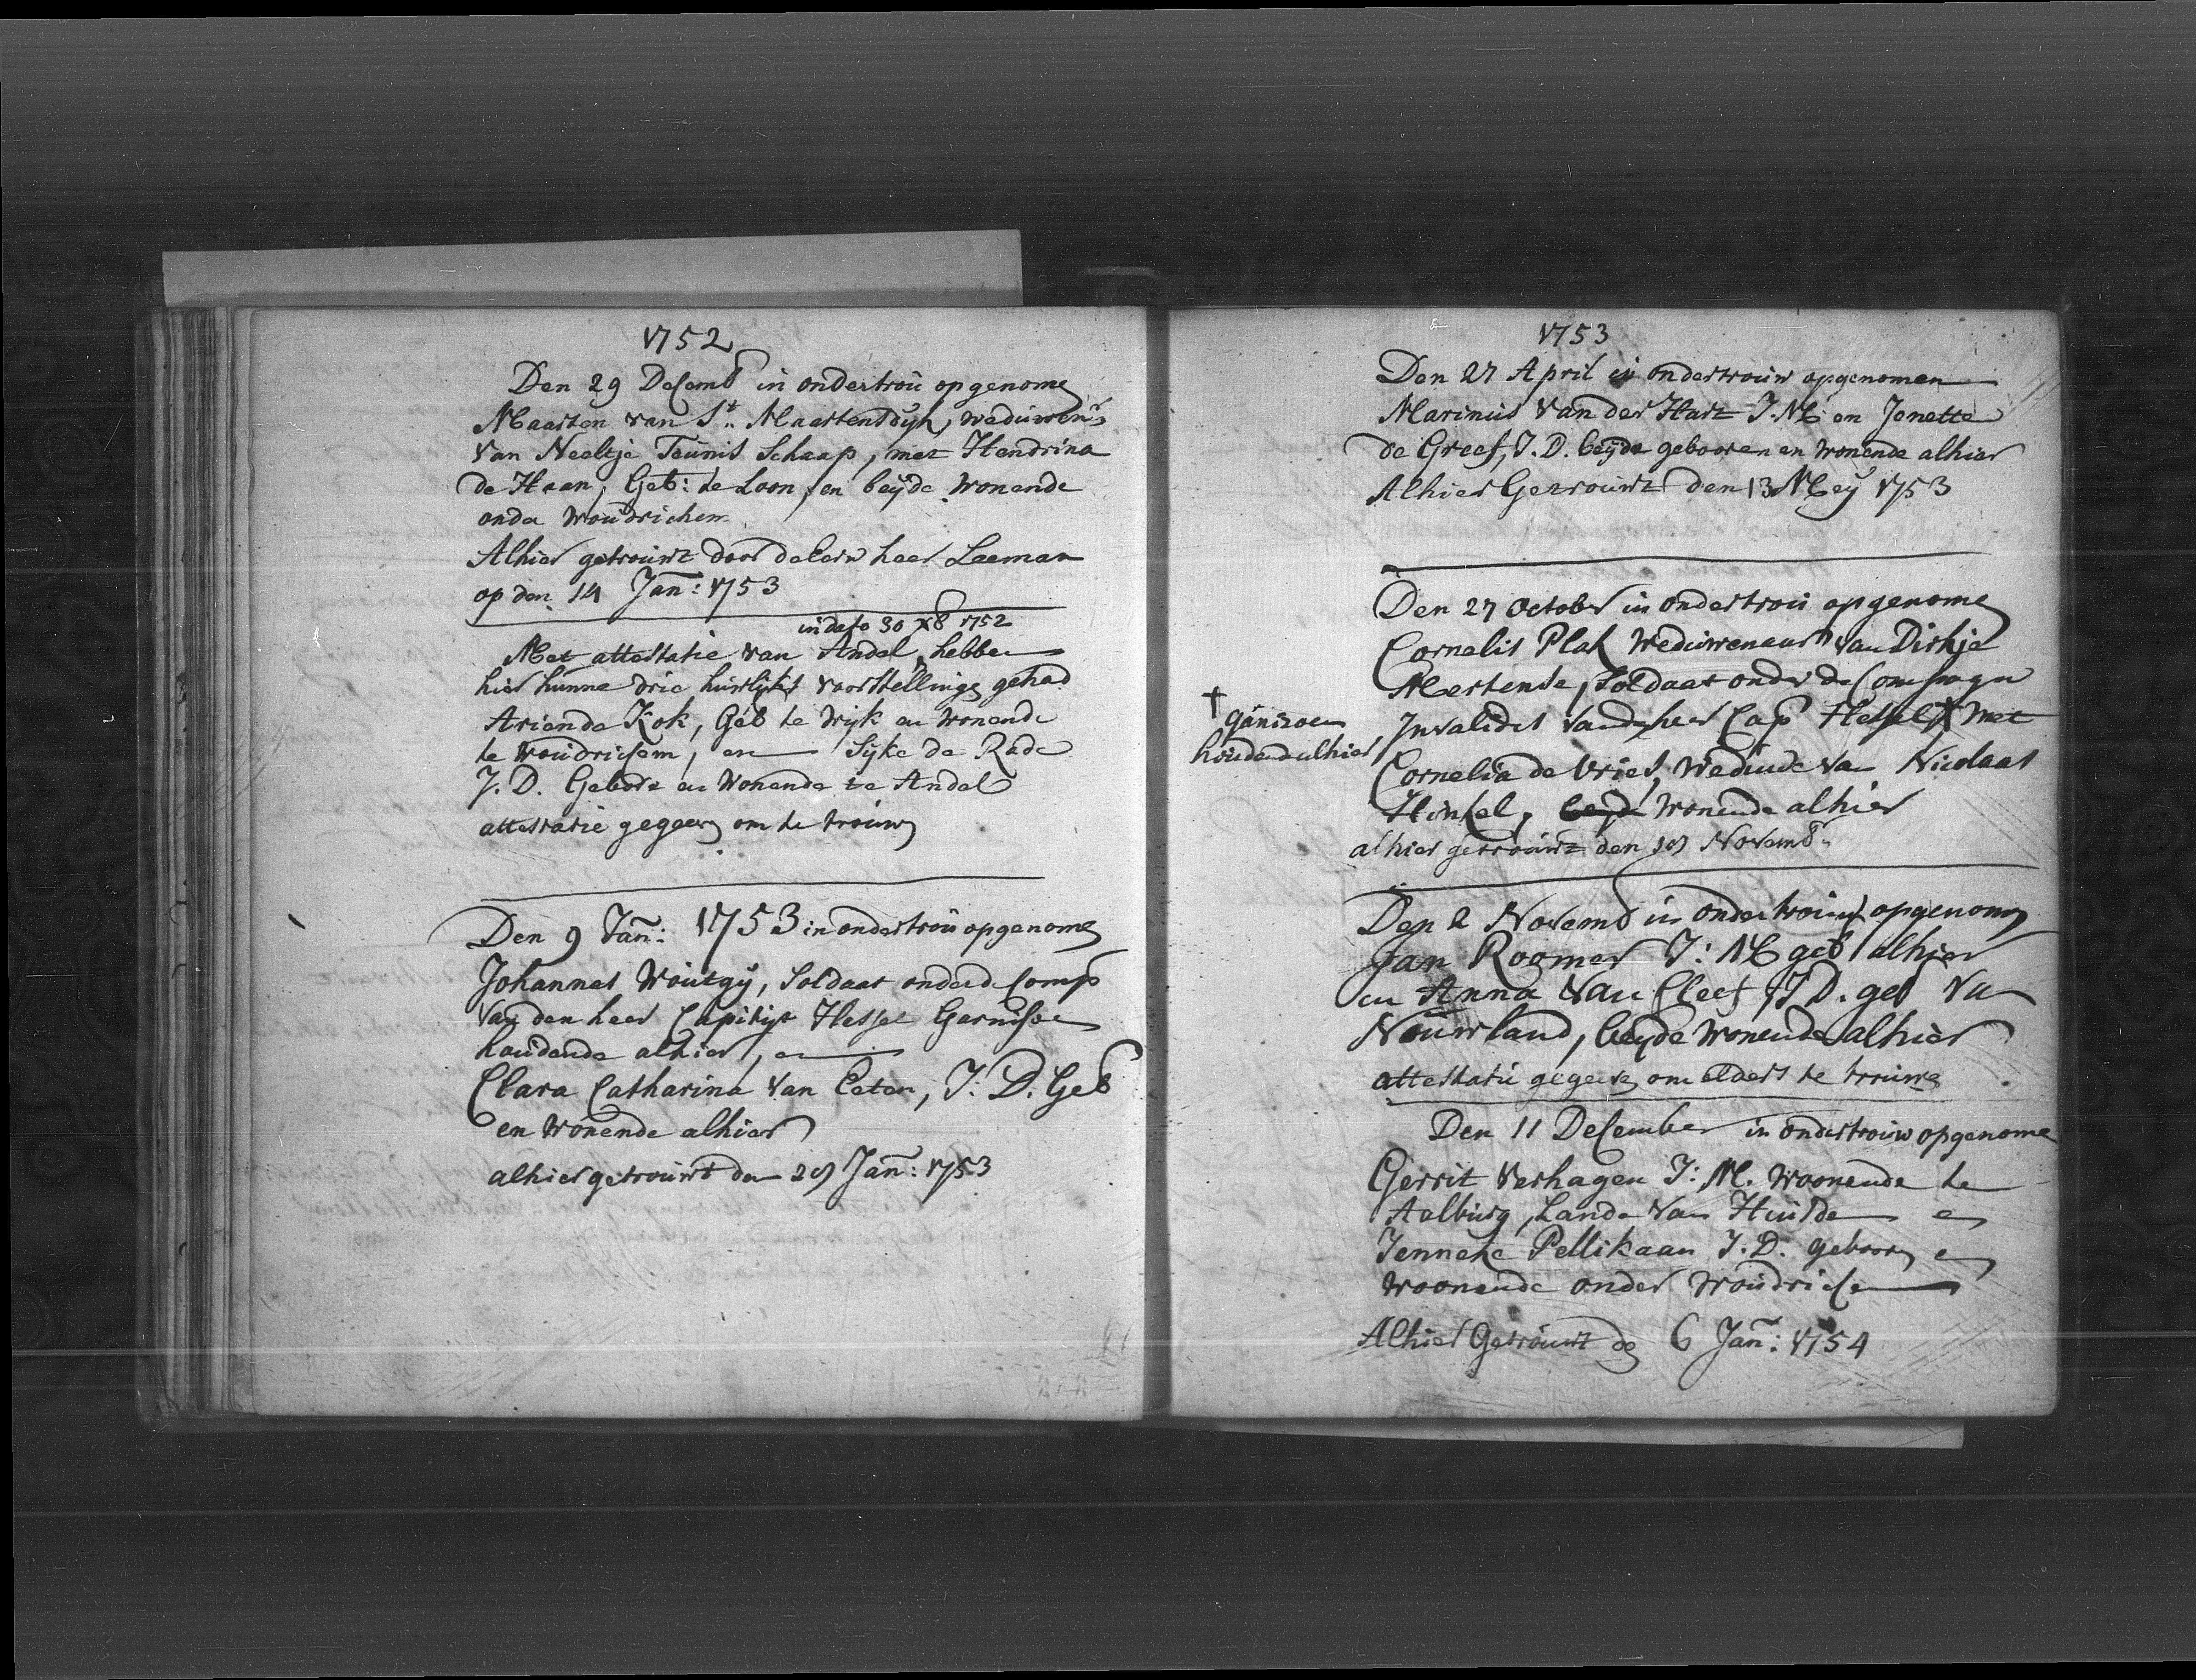 1752
Den 29 Desemb in ondertroú opgenome
Maarten van St. Maartensdyk, weduwenr
Van Neeltje Teúnis Schaap, met Hendrina
de Haan, Geb: te Loon, en beÿde wonende
onder Woúdrichem
Alhier getroúwt door den heer Leeman
op den 14 Jan: 1753
in dato 30 xb 1752
Met attestatie van Andel, hebben
hier húnne drie húwlijks voorstellinge gehad
Arien de Kok, Geb te Wijk en wonende
te Woúdrichem, en Sijke de Rade
J. D. Gebore en wonende te Andel
attestatie gegeven om te troúwen
Den 9 Jan: 1753 in ondertroú opgenome
Johannes Woútgÿ, Soldaat onder de Comp
van den heer Capitijn Hessel Garnisoen
houdende alhier, en
Clara Catharina van Eeten, J: D. Geb
en wonende alhier
alhier getroúwt den 29 Jan: 1753
1753
Den 27 April in ondertroúw opgenomen
Marinus van der Hart J. M: en Jonette
de Greef, J. D. beÿde gebooren en wonende alhier
Alhier Getroúwt den 13 Meÿ 1753
Den 27 October in ondertroú opgenome
Cornelis Plak Weduwenaar van Dirkje
Mertense, Soldaat onder de Compagn
Invalides van de heer Cap Hessel † met
† ganisoen
hoúdend alhier,
Cornelia de Vries, Wedúwe van Nicolaas
Hinkel, beyde wonende alhier
alhier getroúwt den 19 Novemb.
Den 2 Novemb in ondertroúw opgenomen
Jan Roomer J: M geb alhier
en Anna van Cleef J D. geb van
Noúwland, beyde wonende alhier
attestatie gegeven om elders te trouwe
Den 11 December in ondertroúw opgenome
Gerrit Verhagen J: M. woonende te
Aalburg, Lande van Huisde en
Jenneke Pellikaan J. D. gebooren en
woonende onder Woúdriche
Alhier Getroúwt den 6 Jan: 1754